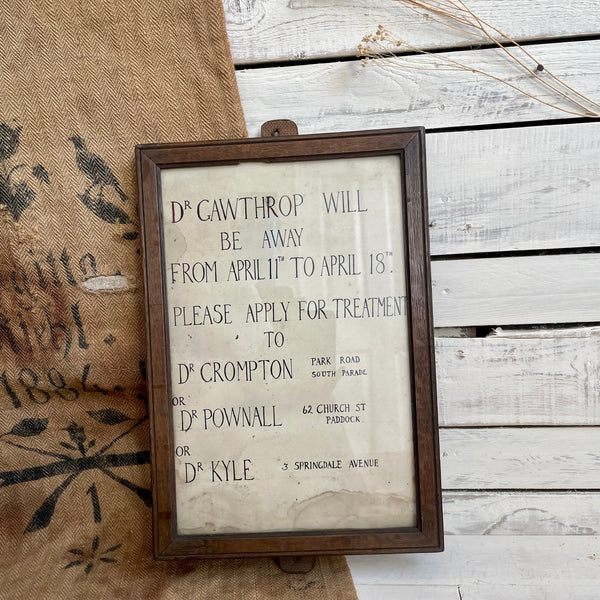 Riehl.
1884
1
Dr CAWTHROP WILL
BE AWAY
FROM APRIL 11TH TO APRIL 18TH.
PLEASE APPLY FOR TREATMENT
TO
Dr CROMPTON PARK ROAD
SOUTH PARADE
OR
Dr POWNALL 62 CHURCH ST
PADDOCK.
OR
Dr KYLE 3 SPRINGDALE AVENUE